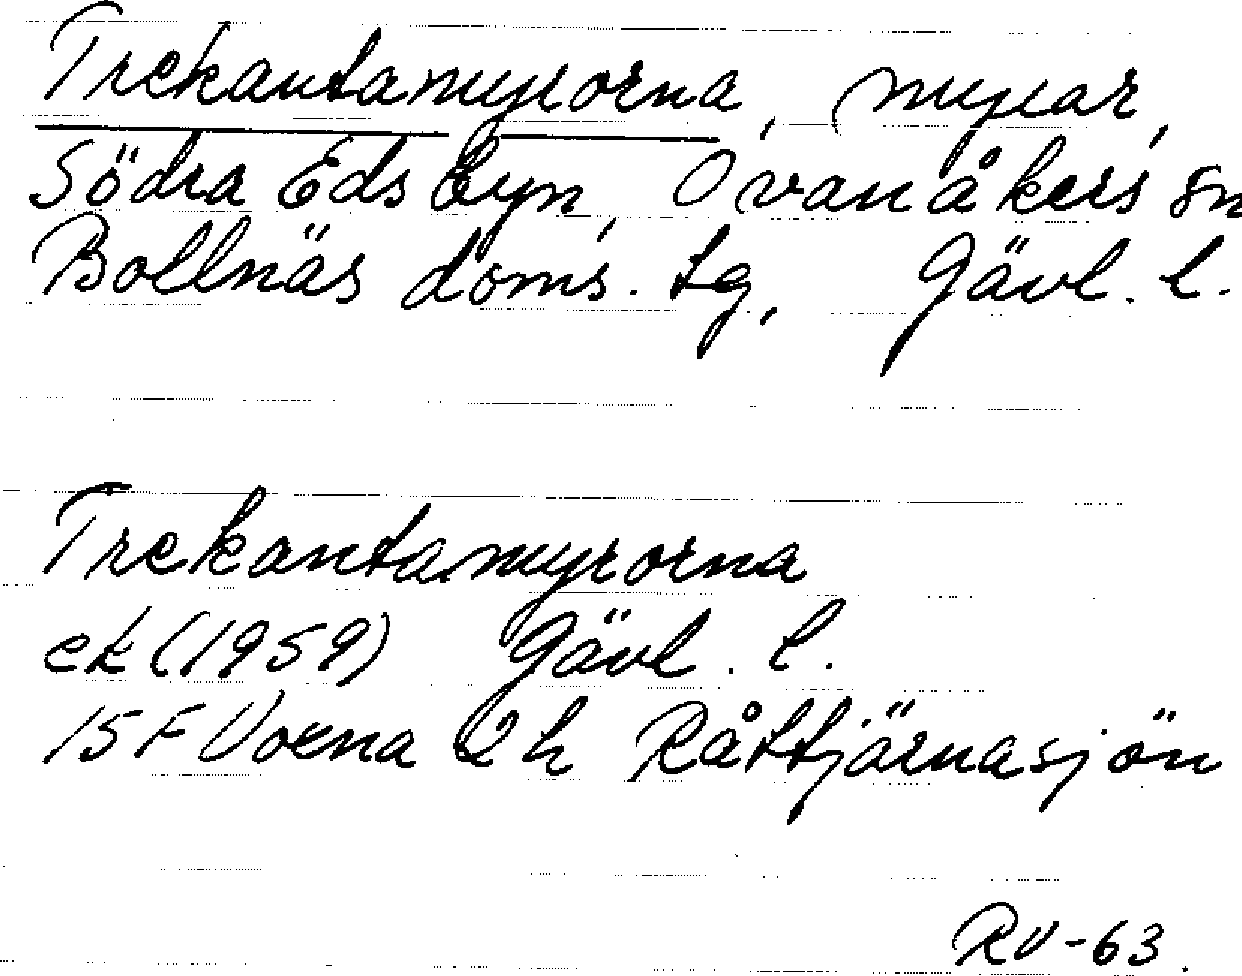 Trekantamyrorna, myrar,
Södra Edsbyn, Ovanåkers sn
Bollnäs doms. tg, Gävl. l.
Trekantamyrorna
ek (1959) Gävl. l.
15 F Voxna 2 h Råttjärnasjön
RV-63.